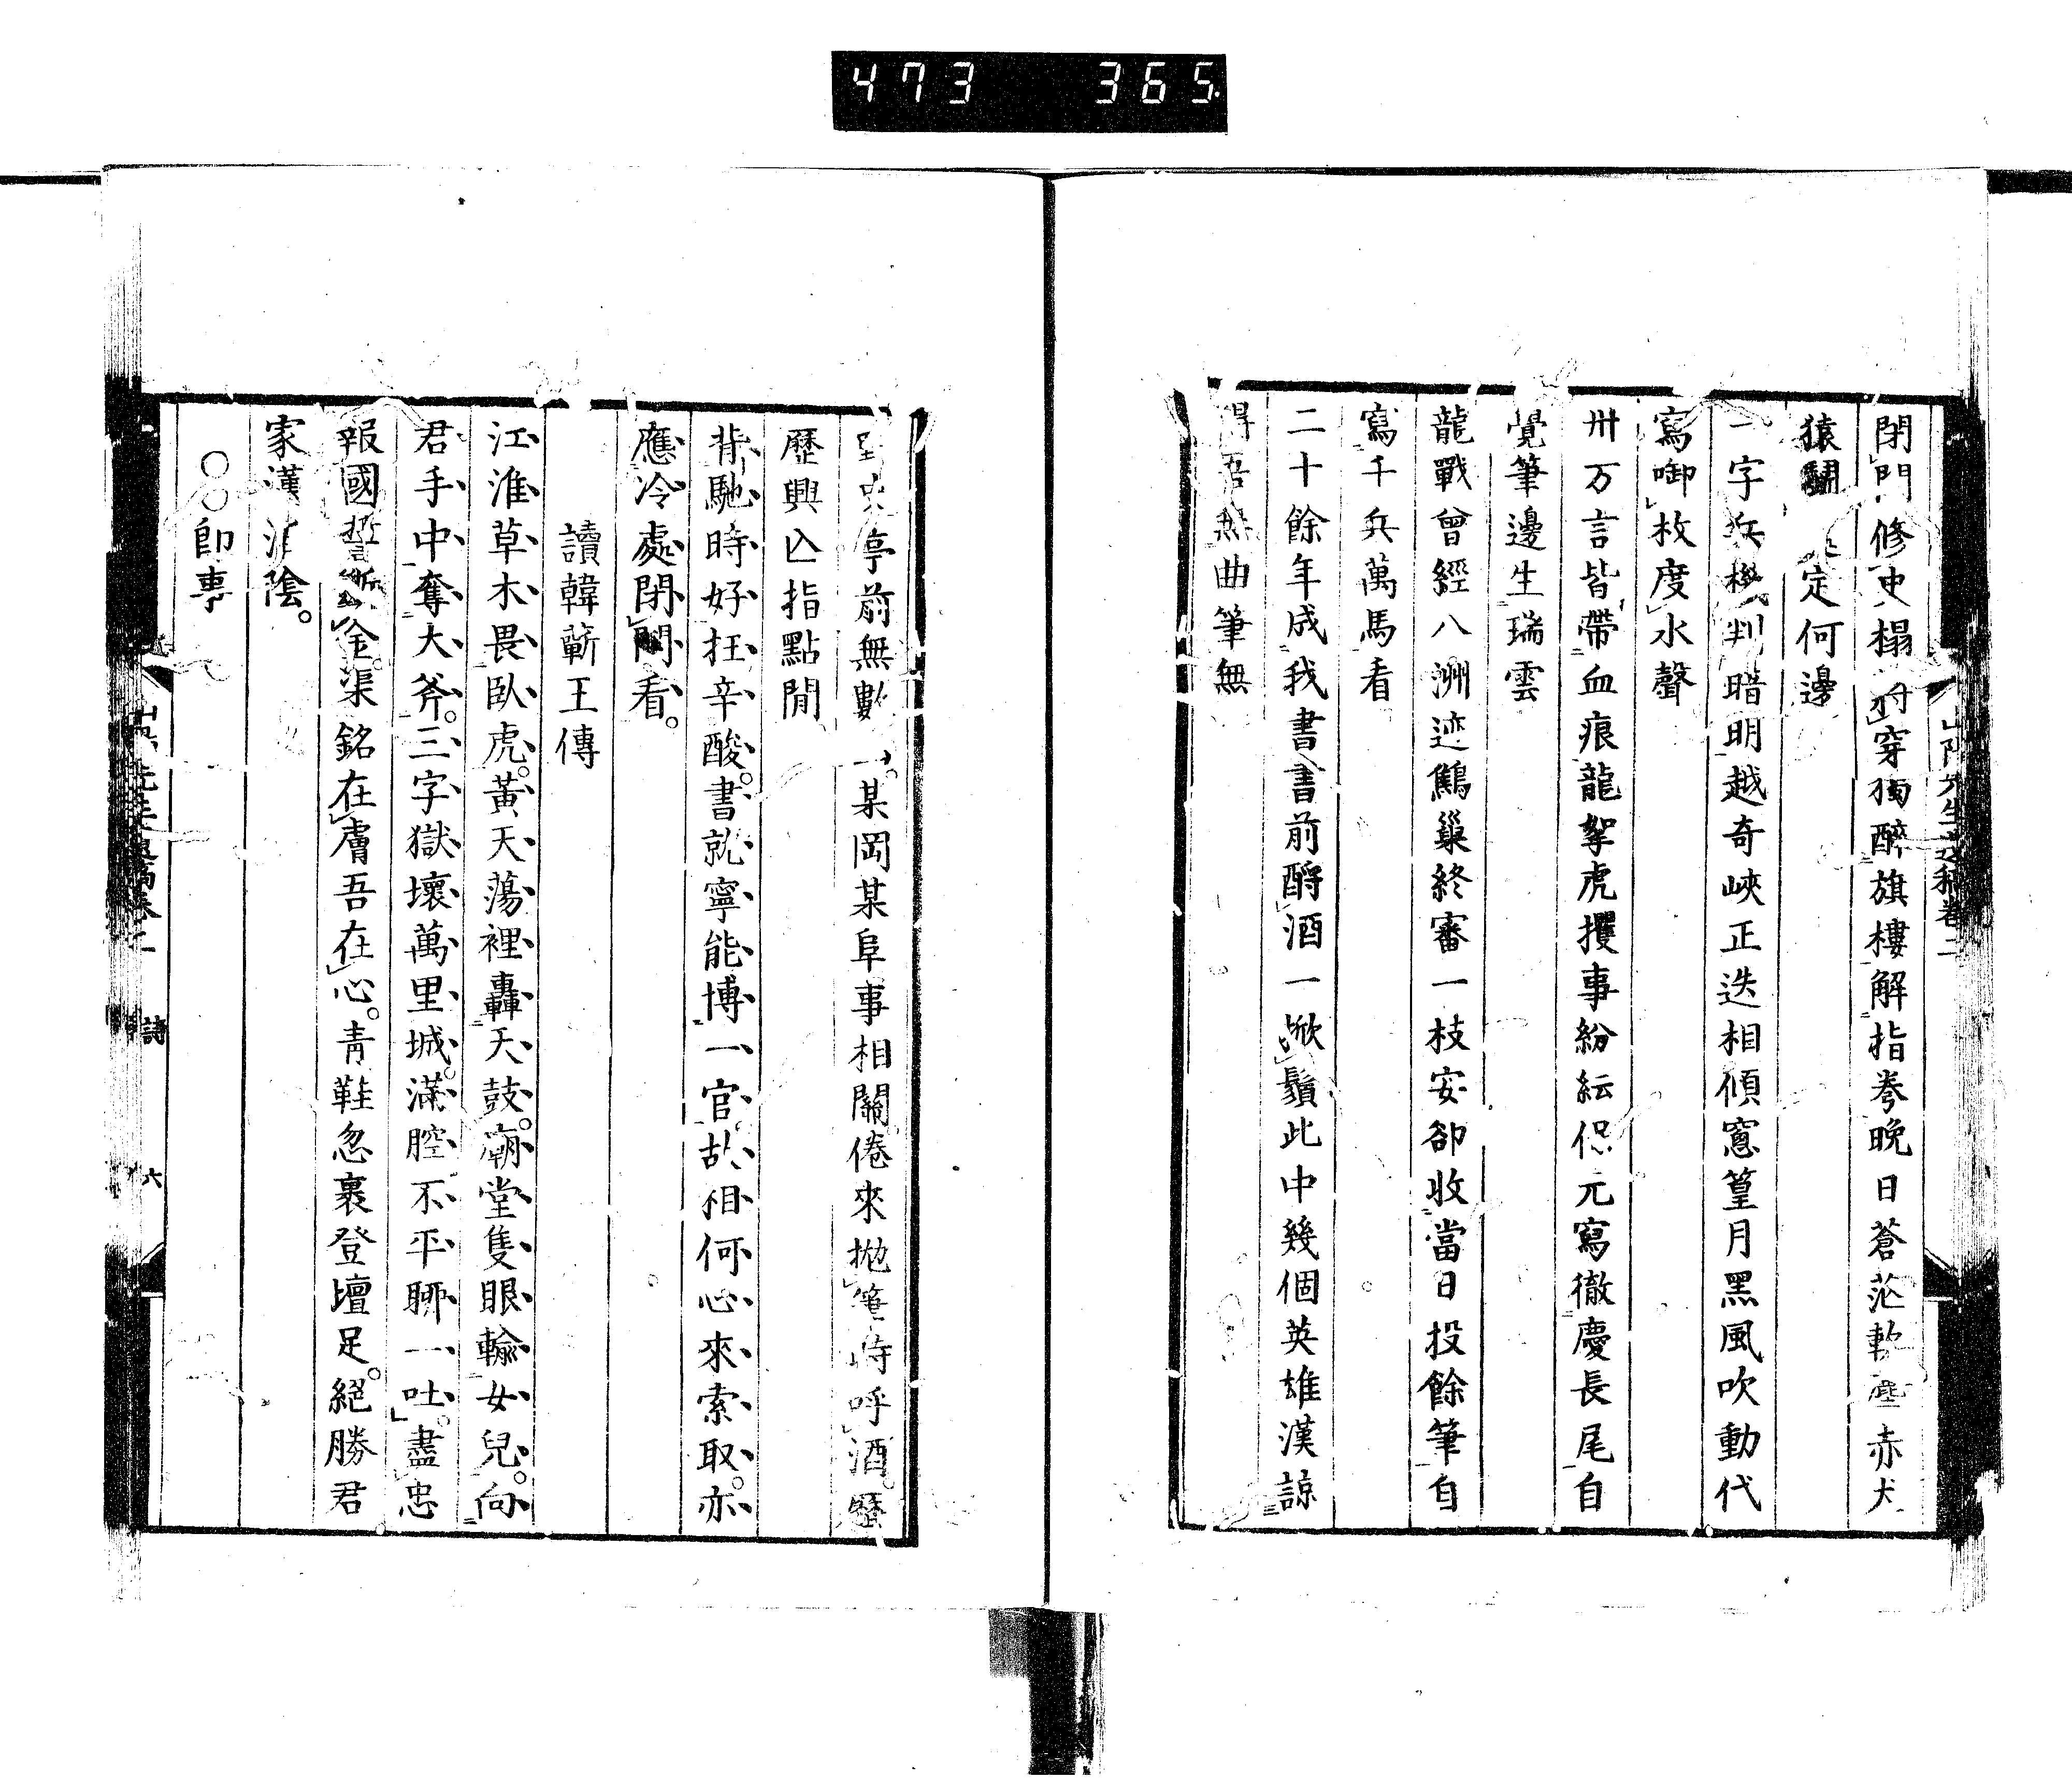 473 365
閉門修史榻將穿獨醉旗樓解指拳晚日蒼茫軟塵赤犬
猿定何邊
一字兵機判暗明越奇峽正迭相傾窓篁月黑風吹動代
寫啣枚度水聲
卅万言皆帶血痕龍拏虎攫事紛紜保元寫徹慶長尾自
覺筆邊生瑞雲
龍戰曾經八洲迹鷦巢終審一枝安卻收當日投餘筆自
寫千兵萬馬看
二十餘年成我書書前酹酒一掀鬚此中幾個英雄漢諒
得吾無曲筆無
亭前無數某岡某阜事相關倦來拋筆時呼酒歷
歷興亾指點閒
背馳時好抂辛酸書就寧能博一官故相何心來索取亦
應冷處閉門看
讀韓蘄王傳
江淮草木畏臥虎黃天蕩裡轟天鼓廟堂隻眼輸女兒向
君手中奪大斧三字獄壞萬里城滿腔不平聊一吐盡忠
報國誓金渠銘在膚吾在心青鞋忽裹登壇足絕勝君
家漢淮陰
○○即事
山陽先生遺稿卷二
詩
六